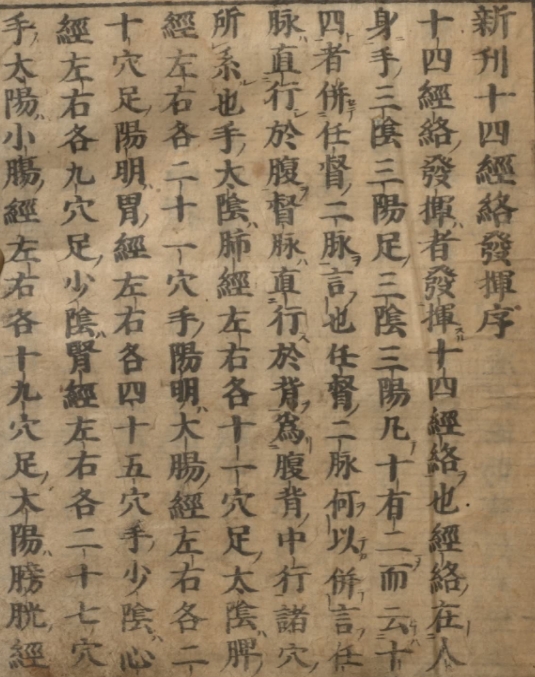 新刊十四經絡發揮序
十四經絡發揮者發揮十四經絡也經絡在人
身手三陰三陽足三陰三陽凡十有二而云十
四者併任督二脉言也任督二脉何以併言任
脉直行於腹督脉直行於背為腹背中行諸穴
所系也手太陰肺經左右各十一穴足太陰脾
經左右各二十一穴手陽明大腸經左右各二
十穴足陽明胃經左右各四十五穴手少陰心
經左右各九穴足少陰腎經左右各二十七穴
手太陽小腸經左右各十九穴足太陽膀胱經